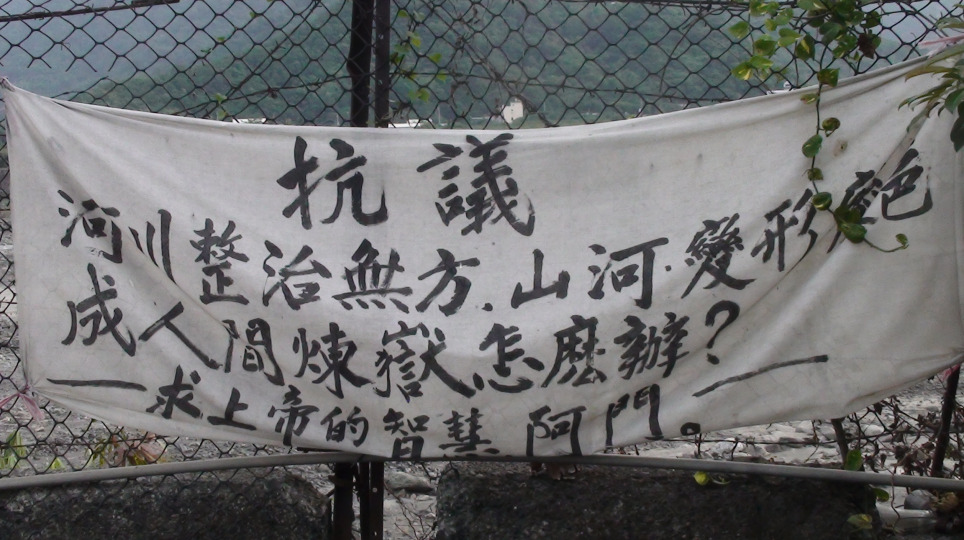 抗議
河川整治無方.山河.變形
成人間煉嶽怎麼辦?
—求上帝的智慧阿門。—